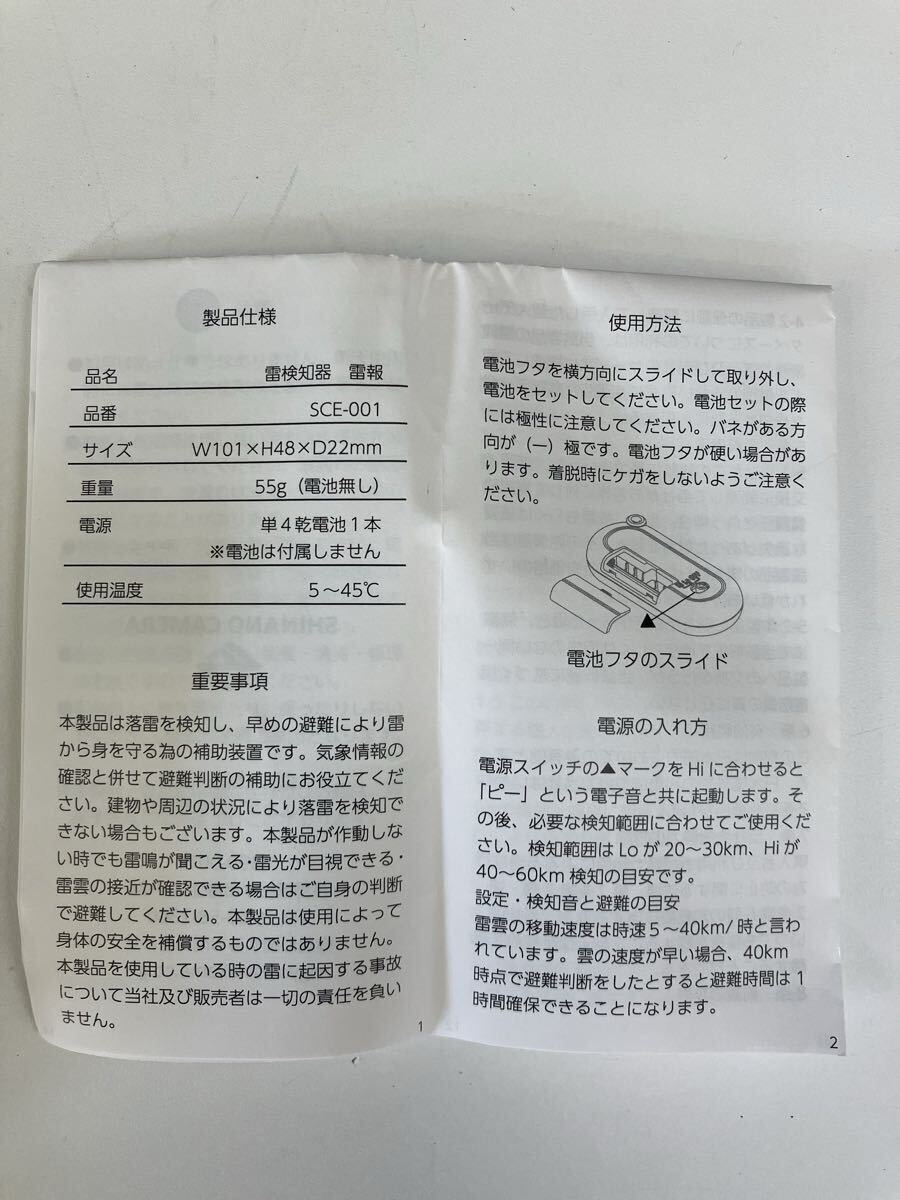 製品仕様
品名 雷検知器 雷報
品番 SCE-001
サイズ W101×H48×D22mm
重量 55g(電池無し)
電源 単4乾電池1本
※電池は付属しません
使用温度 5～45℃
重要事項
本製品は落雷を検知し、早めの避難により雷
から身を守る為の補助装置です。気象情報の
確認と併せて避難判断の補助にお役立てくだ
さい。建物や周辺の状況により落雷を検知で
きない場合もございます。本製品が作動しな
い時でも雷鳴が聞こえる・雷光が目視できる・
雷雲の接近が確認できる場合はご自身の判断
で避難してください。本製品は使用によって
身体の安全を補償するものではありません。
本製品を使用している時の雷に起因する事故
について当社及び販売者は一切の責任を負い
ません。
1
使用方法
電池フタを横方向にスライドして取り外し、
電池をセットしてください。電池セットの際
には極性に注意してください。バネがある方
向が(ー)極です。電池フタが硬い場合があ
ります。着脱時にケガをしないようご注意く
ださい。
電池フタのスライド
電源の入れ方
電源スイッチの▲マークをHiに合わせると
「ピー」という電子音と共に起動します。そ
の後、必要な検知範囲に合わせてご使用くだ
さい。検知範囲はLoが20～30km、Hiが
40～60km検知の目安です。
設定・検知音と避難の目安
雷雲の移動速度は時速5～40km/時と言わ
れています。雲の速度が早い場合、40km
時点で避難判断をしたとすると避難時間は1
時間確保できることになります。
2
SHINANO CAMERA